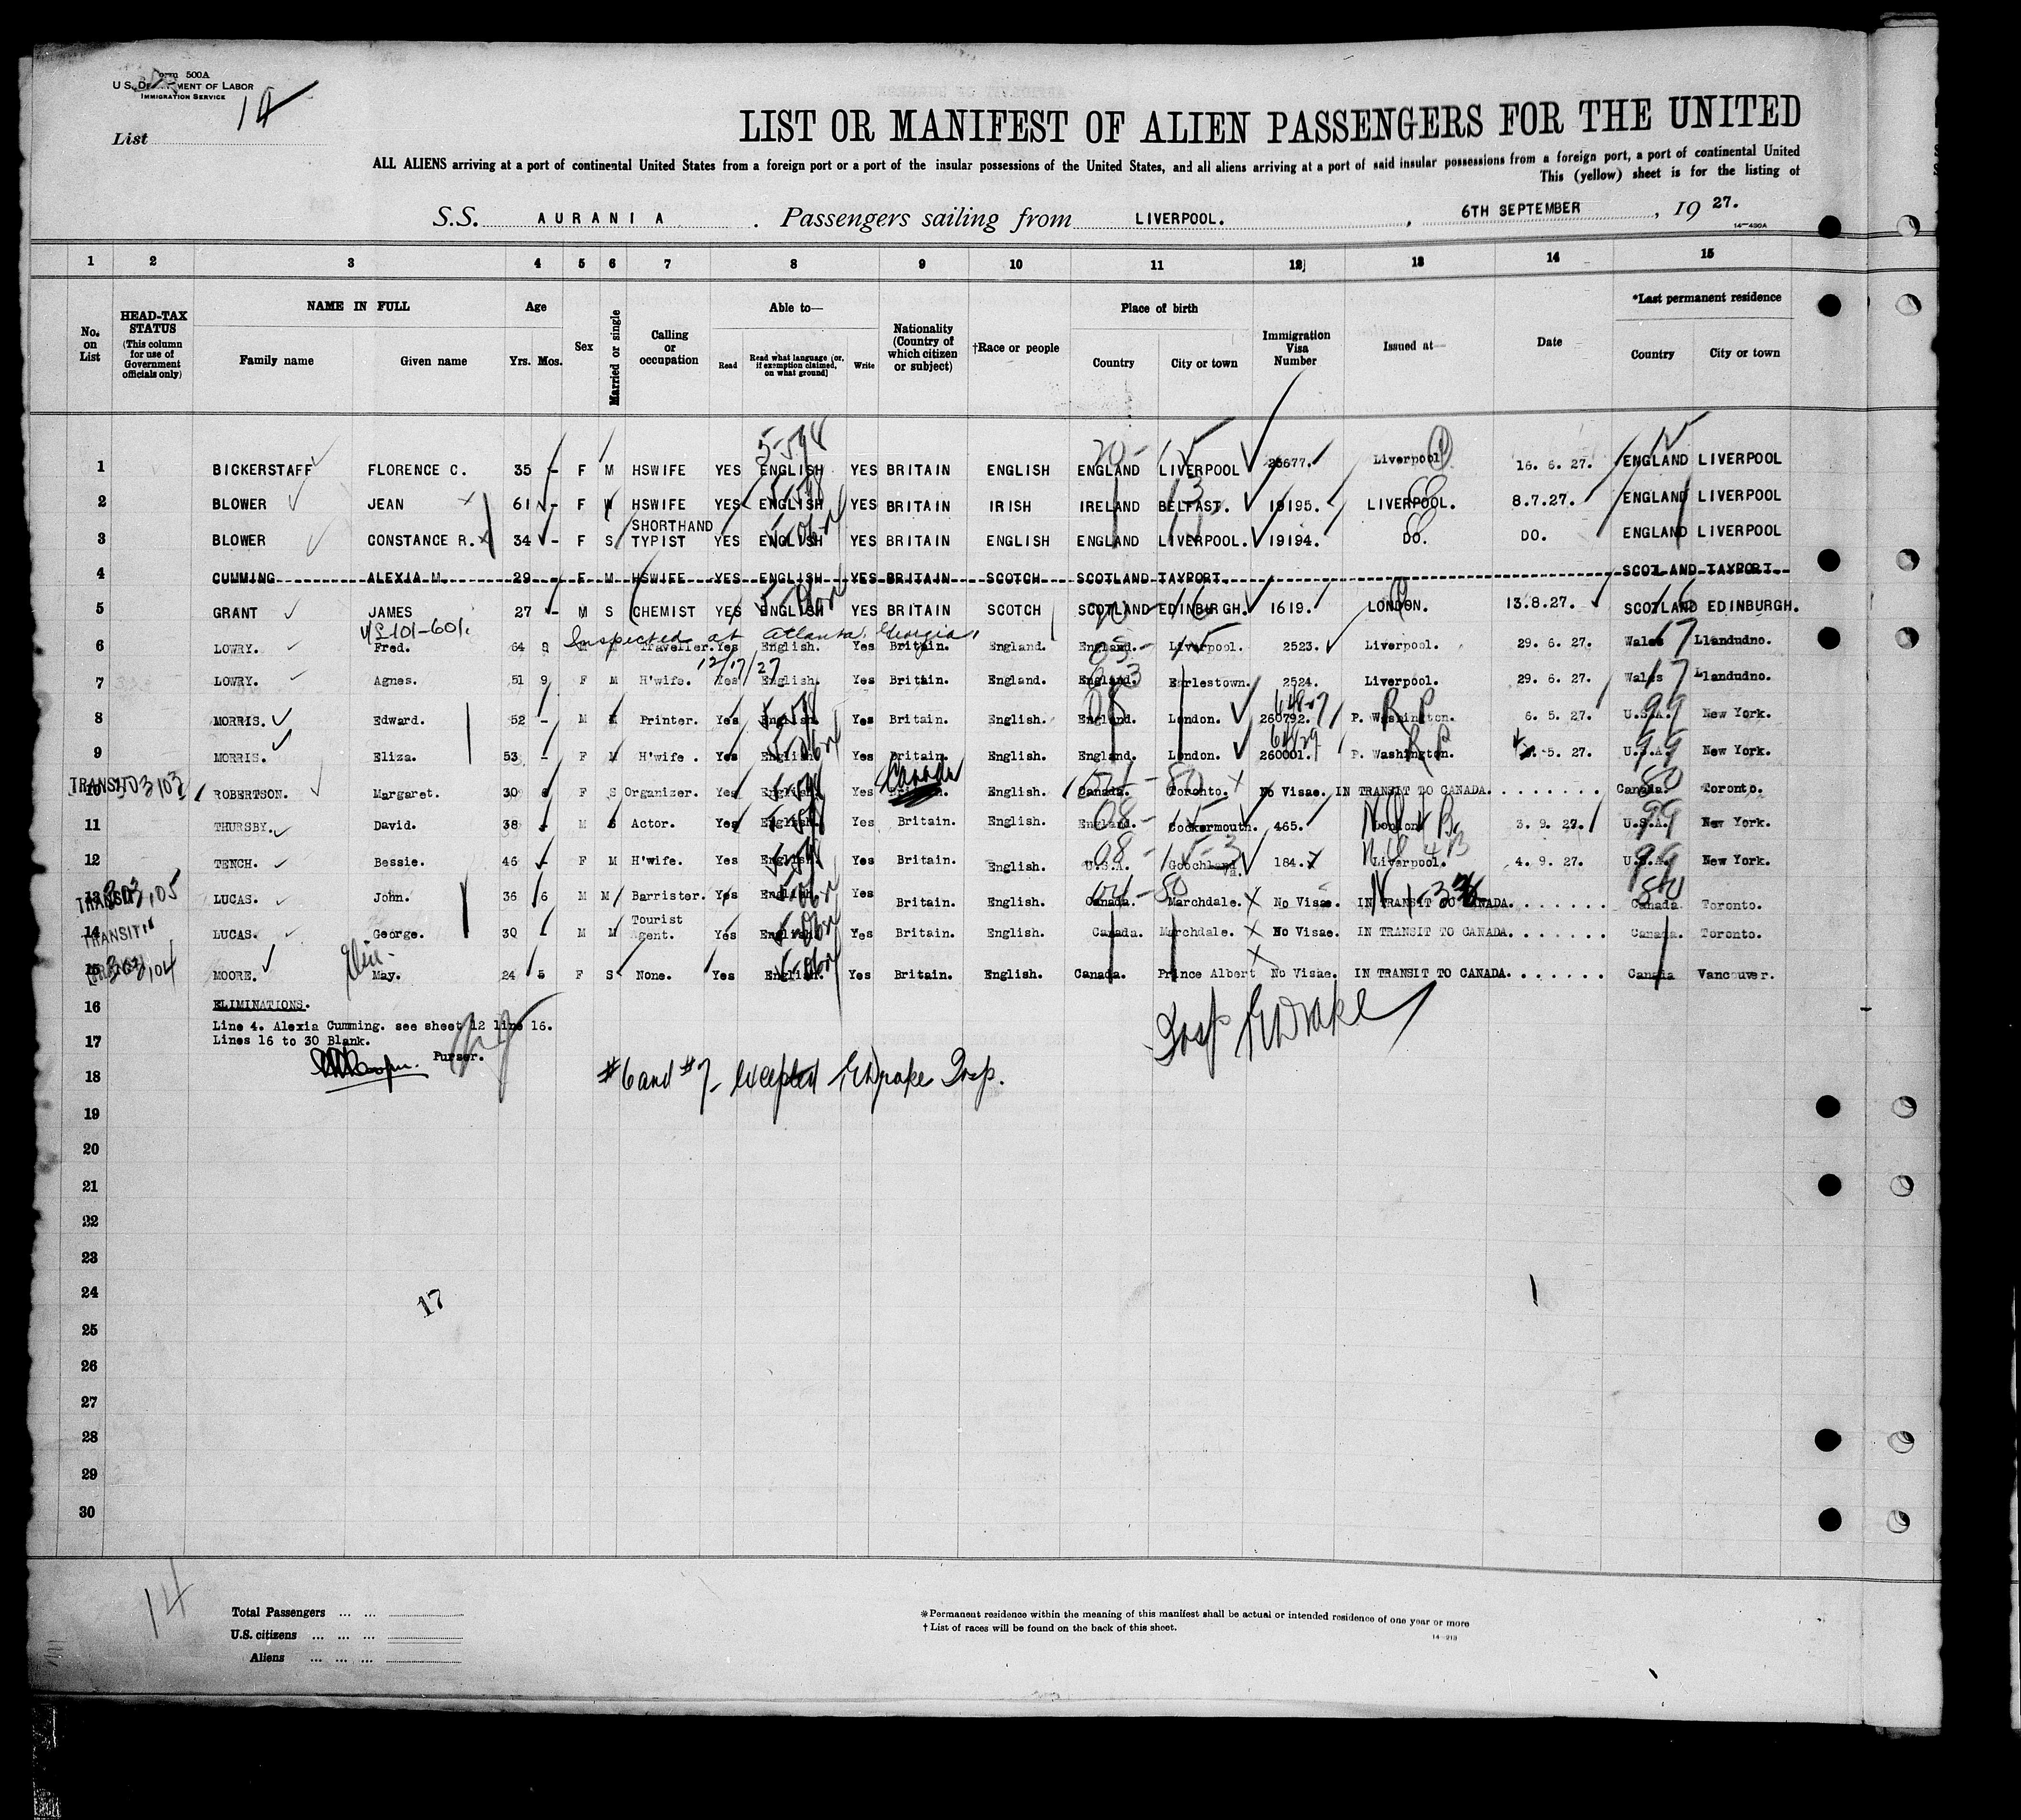 Form 500A
U.S. DEPARTMENT OF LABOR
IMMIGRATION SERVICE
List 14
LIST OR MANIFEST OF ALIEN PASSENGERS FOR THE UNITED
ALL ALIENS arriving at a port of continental United States from a foreign port or a port of the insular possessions of the United States, and all aliens arriving at a port of said insular possessions from a foreign port, a port of continental United
This (yellow) sheet is for the listing of
S.S. AURANIA. Passengers sailing from LIVERPOOL. , 6TH SEPTEMBER , 1927.
14-430A
1 2 3 4 5 6 7 8 9 10 11 12 13 14 15
No. on List
HEAD-TAX STATUS (This column for use of Government officials only)
NAME IN FULL
Family name Given name
Age
Yrs. Mos.
Sex
Married or single
Calling or occupation
Able to—
Read Read what language [or, if exemption claimed, on what ground] Write
Nationality (Country of which citizen or subject)
†Race or people
Place of birth
Country City or town
Immigration Visa Number
Issued at—
Date
*Last permanent residence
Country City or town
1 BICKERSTAFF FLORENCE C. 35 - F M HSWIFE YES ENGLISH YES BRITAIN ENGLISH ENGLAND LIVERPOOL 25677. Liverpool 16. 6. 27. ENGLAND LIVERPOOL
2 BLOWER JEAN 61 - F HSWIFE YES ENGLISH YES BRITAIN IRISH IRELAND BELFAST. 19195. LIVERPOOL. 8.7.27. ENGLAND LIVERPOOL
3 BLOWER CONSTANCE R. 34 - F S SHORTHAND TYPIST YES ENGLISH YES BRITAIN ENGLISH ENGLAND LIVERPOOL. 19194. DO. DO. ENGLAND LIVERPOOL
4 CUMMING ALEXIA M. 29 F M HSWIFE YES ENGLISH YES BRITAIN SCOTCH SCOTLAND TAYPORT. SCOTLAND TAYPORT.
5 GRANT JAMES 27 - M S CHEMIST YES ENGLISH YES BRITAIN SCOTCH SCOTLAND EDINBURGH. 1619. LONDON. 13.8.27. SCOTLAND EDINBURGH.
V/S 101-601. Inspected at Atlanta, Georgia,
6 LOWRY. Fred. 64 9 M M Traveller. Yes English. Yes Britain. England. England. Liverpool. 2523. Liverpool. 29. 6. 27. Wales Llandudno.
12/17/27
7 LOWRY. Agnes. 51 9 F M H'wife. Yes English. Yes Britain. England. England. Earlestown. 2524. Liverpool. 29. 6. 27. Wales Llandudno.
8 MORRIS. Edward. 52 - M M Printer. Yes English. Yes Britain. English. England. London. 260792. P. Washington. 6. 5. 27. U.S.A. New York.
9 MORRIS. Eliza. 53 - F M H'wife. Yes English. Yes Britain. English. England. London. 260001. P. Washington. 5. 27. U.S.A. New York.
TRANSIT 303103
Canada
10 ROBERTSON. Margaret. 30 F S Organizer. Yes English. Yes Britain. English. Canada. Toronto. No Visae. IN TRANSIT TO CANADA. . . . . . . . Canada. Toronto.
11 THURSBY. David. 38 M S Actor. Yes English. Yes Britain. English. England. Cockermouth. 465. London. 3. 9. 27. U.S.A. New York.
12 TENCH. Bessie. 46 - F M H'wife. Yes English. Yes Britain. English. U.S.A. Goochland Va. 184. Liverpool. 4. 9. 27. U.S.A. New York.
TRANSIT 303,105
13 LUCAS. John. 36 6 M M Barrister. Yes English. Yes Britain. English. Canada. Marchdale. No Visae. IN TRANSIT TO CANADA. . . . . . . Canada. Toronto.
TRANSIT "
14 LUCAS. George. 30 M M Tourist Agent. Yes English. Yes Britain. English. Canada. Marchdale. No Visae. IN TRANSIT TO CANADA. . . . . . . Canada. Toronto.
TRANSIT 303,104
15 MOORE. May. 24 5 F S None. Yes English. Yes Britain. English. Canada. Prince Albert No Visae. IN TRANSIT TO CANADA. . . . . . . Canada Vancouver.
16 ELIMINATIONS.
Line 4. Alexia Cumming. see sheet 12 line 16.
17 Lines 16 to 30 Blank.
Purser.
Insp E Drake
18 #6 and #7- Excepted E Drake Insp.
19
20
21
22
23
24
17
25
26
27
28
29
30
14
Total Passengers ... ...
U.S. citizens ... ... ...
Aliens ... ... ...
*Permanent residence within the meaning of this manifest shall be actual or intended residence of one year or more
† List of races will be found on the back of this sheet.
14-213